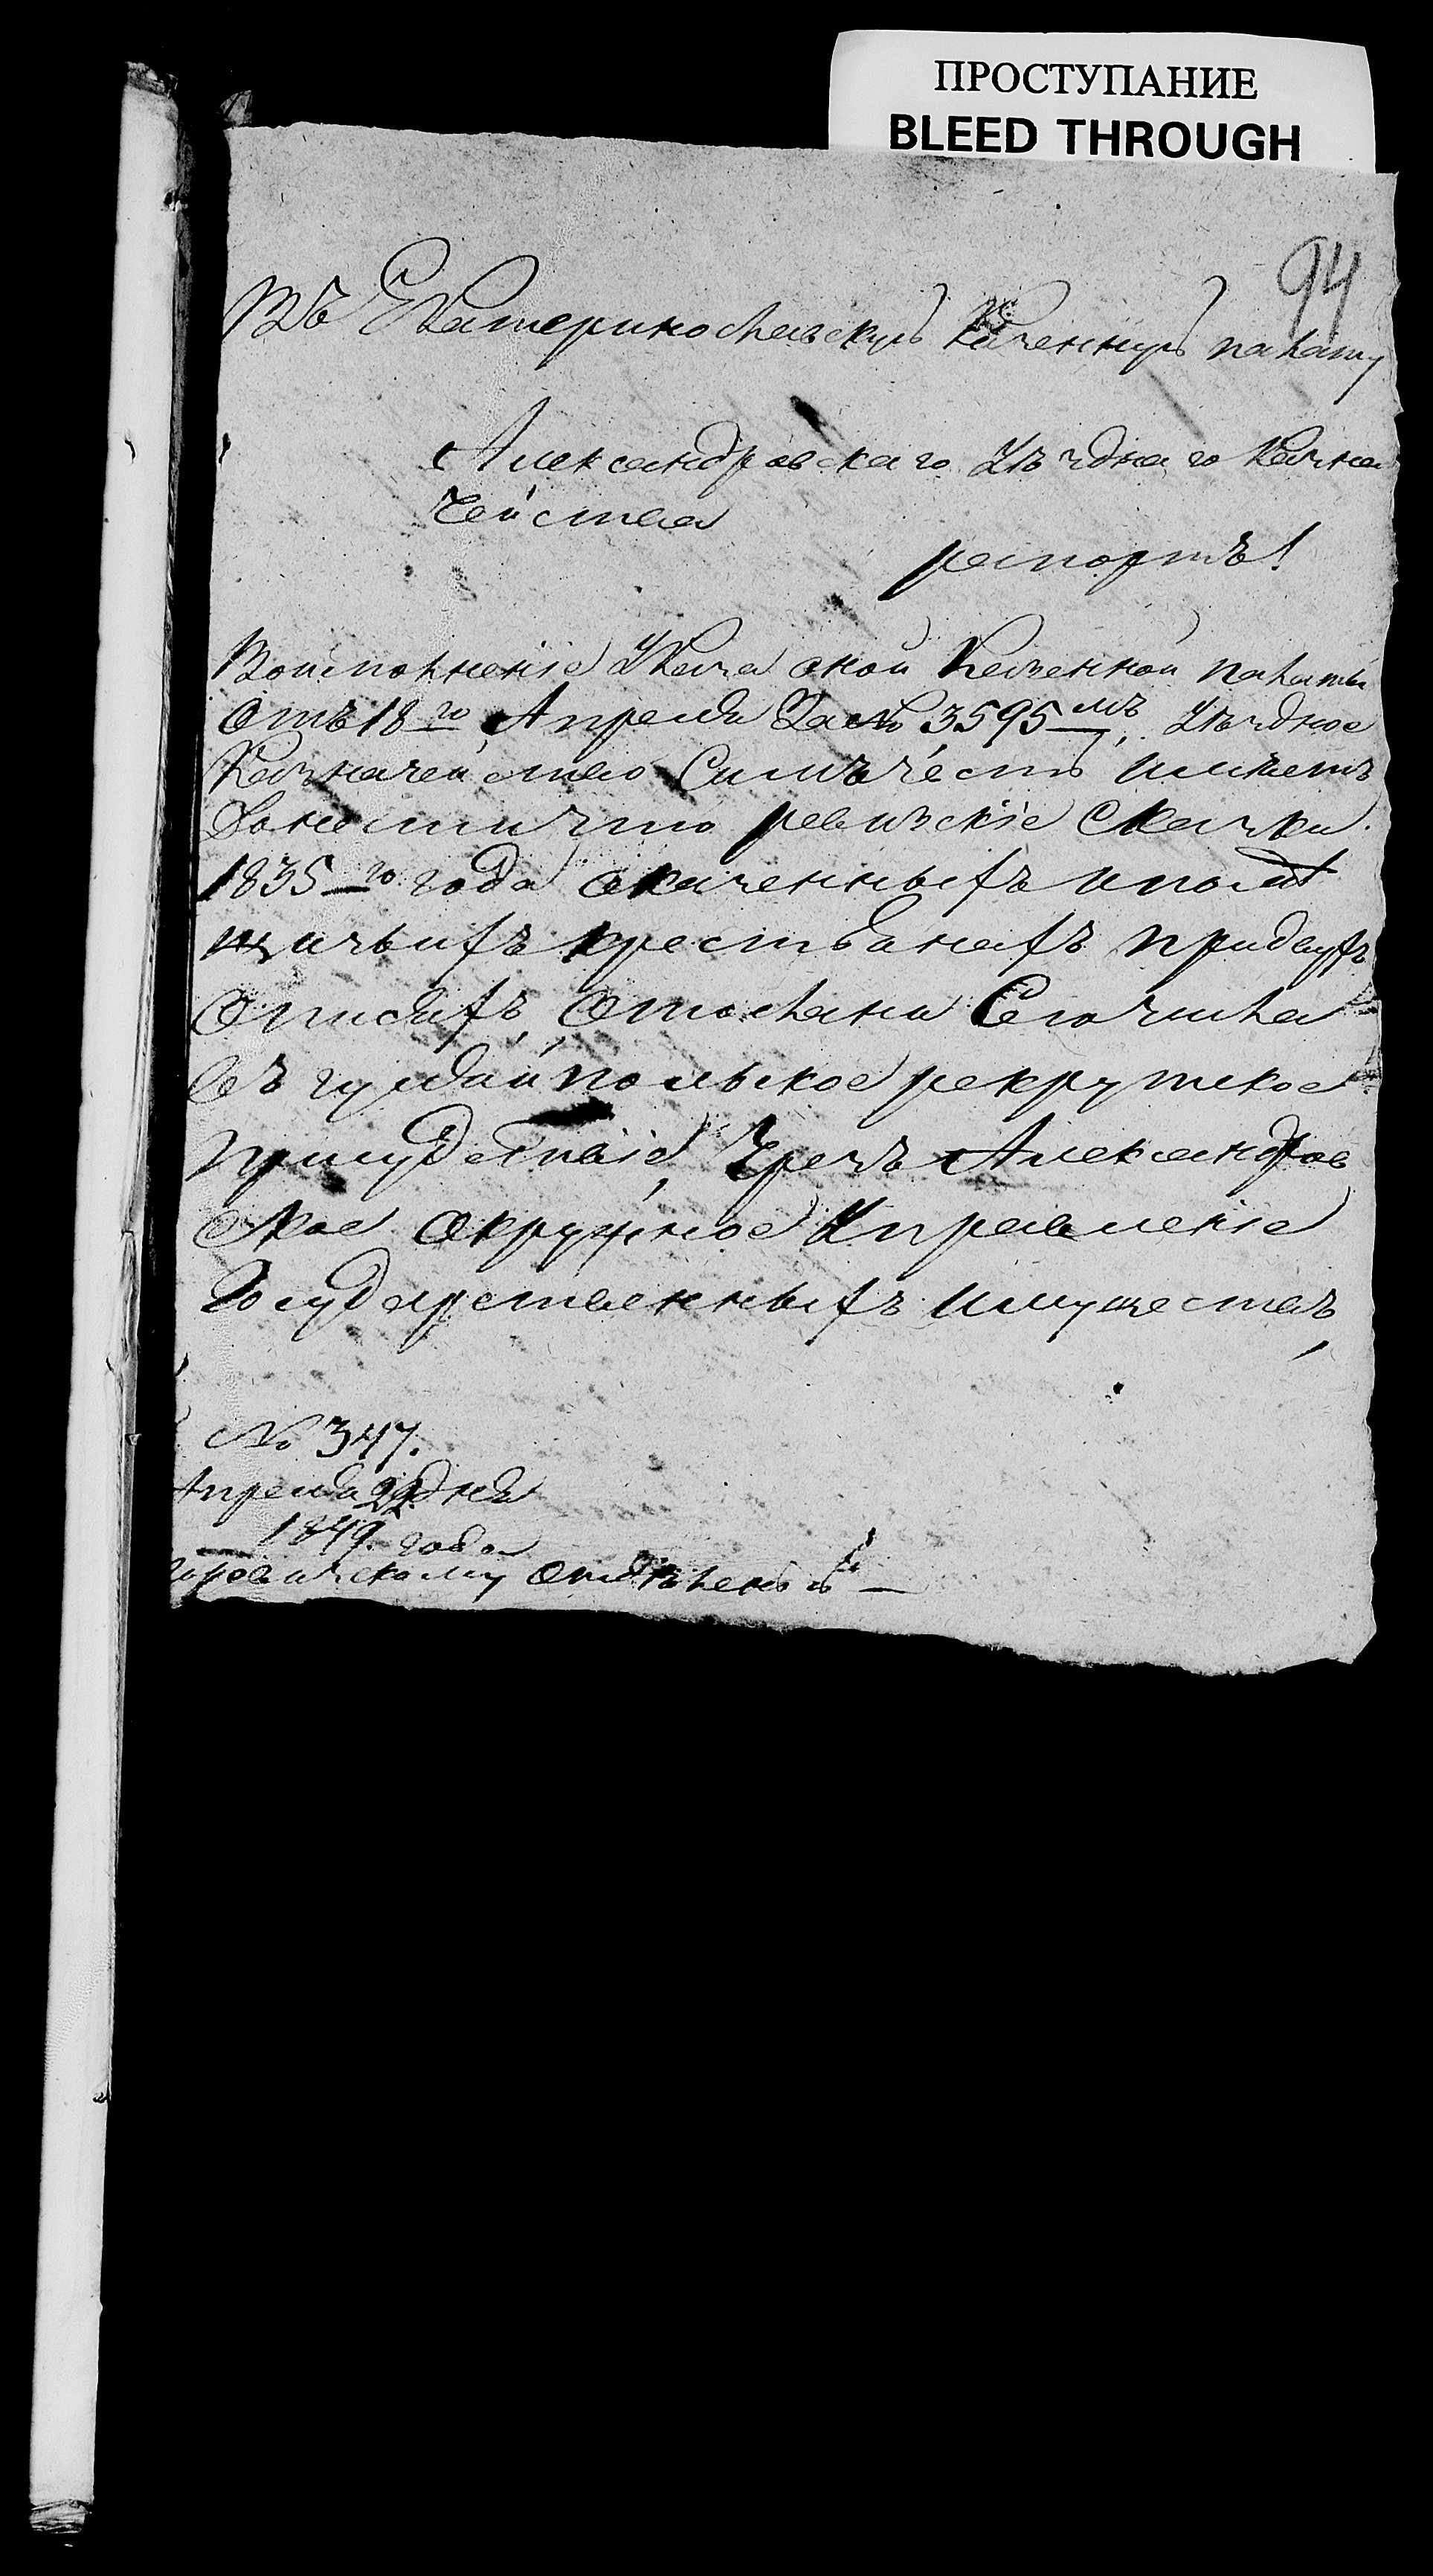 ПРОСТУПАНИЕ
BLEED THROUGH
94
Въ Екатеринославскую Казенную палату
Александровскаго Уѣзднаго Казна
чейства
рапортъ!
Воисполненіе Указа оной Казенной палаты
Отъ 18го Апреля За № 3595мъ, Уѣздное
Казначейство Симъ честь имѣетъ
Донести что ревизскіе Сказки
1835го года оказенныхъ ипомѣ
щичьихъ крестьянахъ придвухъ
Описяхъ, Отосланы Сего числа
въ гуляйпольское рекрутское
присудствіе, Чрезъ Александров
ское Окружное Управленіе
Государственныхъ имуществъ
№ 347.
Апреля 22 дня
1849. года
поревизскому отделенію